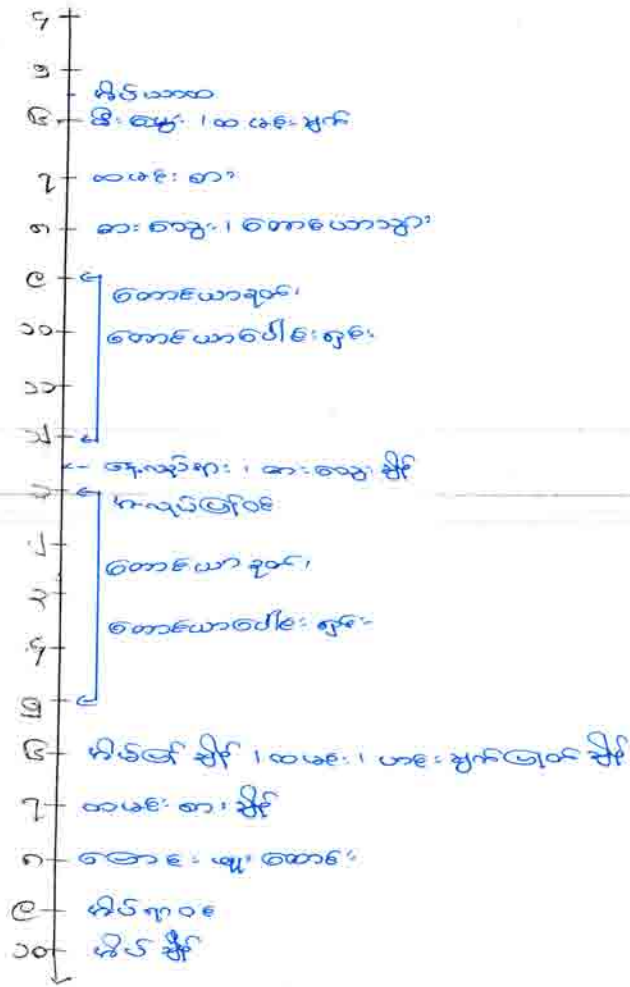 ၄
၅
အိပ်ယာထ
၆ မီးမွှေး၊ ထမင်းချက်
၇ ထမင်းစား
၈ ဓားသွေး၊ တောင်ယာသွား
၉
တောင်ယာခုတ်၊
၁၀ တောင်ယာပေါင်းရှင်း
၁၁
၁၂
နေ့လည်စား၊ ဓားသွေးချိန်
၁ အလုပ်ပြန်ဝင်
၂ တောင်ယာခုတ်၊
၃
တောင်ယာပေါင်းရှင်း
၄
၅
၆ အိမ်ပြန်ချိန်၊ ထမင်း၊ ဟင်းချက်ပြုတ်ချိန်
၇ ထမင်းစားချိန်
၈ ပြောင်းဖူးထောင်း
၉ အိပ်ရာဝင်
၁၀ အိပ်ချိန်